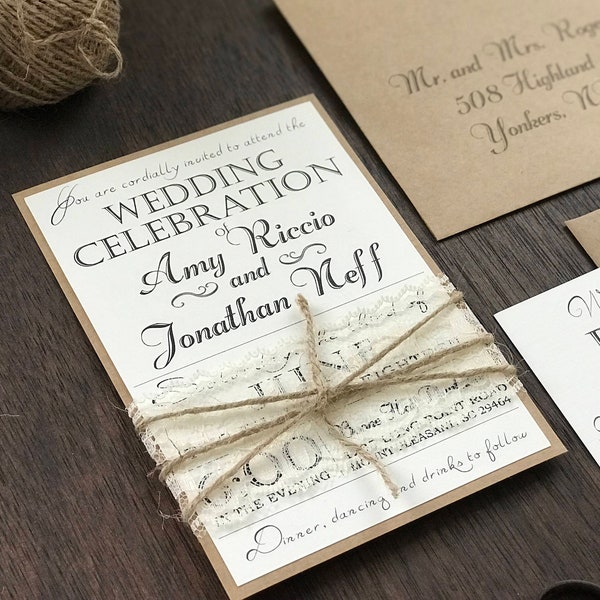 You are cordially invited to attend the
WEDDING
CELEBRATION
of
Amy Riccio
and
Jonathan Neff
JUNE
EIGHTEEN
LONG POINT ROAD
IN THE EVENING MOUNT PLEASANT, SC 29464
Dinner, dancing and drinks to follow
Mr. and Mrs. Roge
508 Highland
Yonkers, N